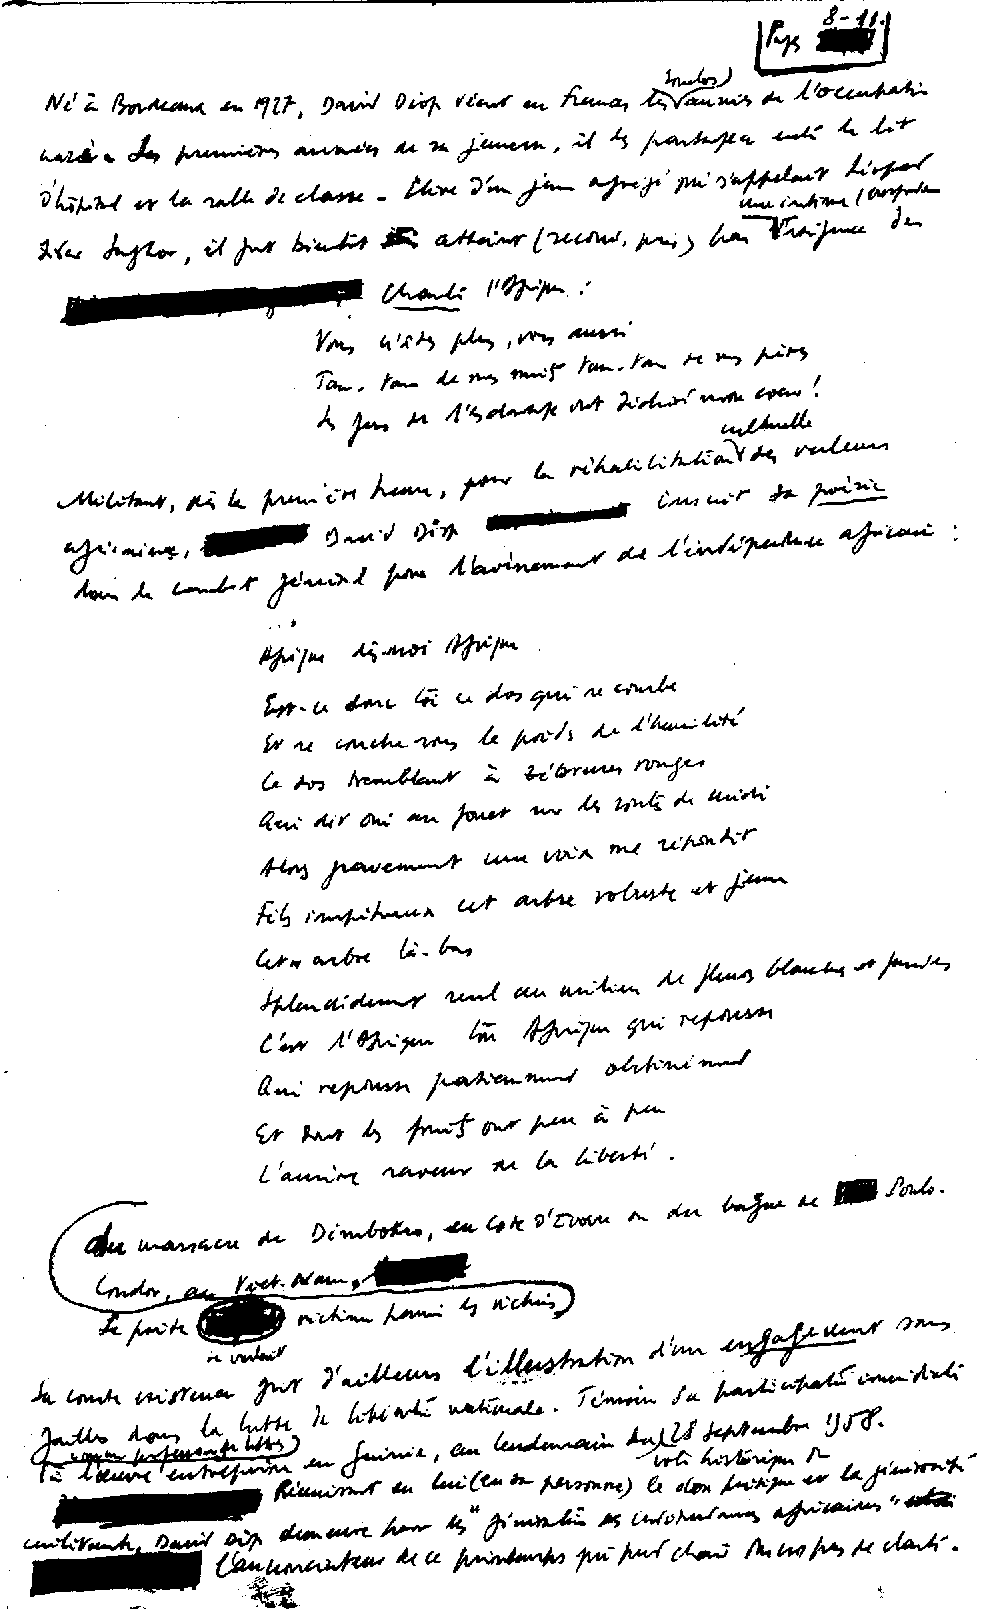 Pages 8-11.
Né à Bordeaux en 1927, David Diop vécut en France toutes les années de l'occupation
nazie. Les premières années de sa jeunesse, il les partagea entre le lit
d'hôpital et la salle de classe. Élève d'un jeune agrégé qui s'appelait Léopold
Sédar Senghor, il fut bientôt atteint (second, pris) par l'exigence d'une intime
Chanter l'Afrique :
Vous n'êtes plus, vous aussi
Tam-tam de mes nuits tam-tam de mes pères
Les fers de l'esclavage ont déchiré mon coeur !
Militant, dès la première heure, pour la réhabilitation culturelle des valeurs
africaines, David Diop inscrit sa poésie
dans le combat général pour l'avènement de l'indépendance africaine :
...
Afrique dis-moi Afrique
Est-ce donc toi ce dos qui se courbe
Et se couche sous le poids de l'humilité
Ce dos tremblant à zébrures rouges
Qui dit oui au fouet sur les routes de midi
Alors gravement une voix me répondit
Fils impétueux cet arbre robuste et jeune
Cet arbre là-bas
Splendidement seul au milieu de fleurs blanches et fanées
C'est l'Afrique ton Afrique qui repousse
Qui repousse patiemment obstinément
Et dont les fruits ont peu à peu
L'amère saveur de la liberté.
du massacre de Dimbokro, en Côte d'Ivoire ou du bagne de Poulo-
Condor, au Viet-Nam,
Le poète se voulait victime parmi les victimes
Sa courte existence fut d'ailleurs l'illustration d'un engagement sans
failles dans la lutte de libération nationale. Témoin sa participation immédiate
comme professeur de lettres
à l'oeuvre entreprise en Guinée, au lendemain du vote historique du 28 septembre 1958.
Réunissant en lui (en sa personne) le don poétique et la générosité
militante, David Diop demeure pour les "générations africaines"
l'annonciateur de ce printemps qui prend chair sous nos pas de clarté.